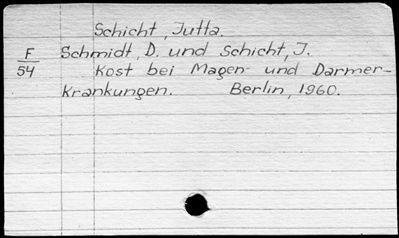 Schicht, Jutta.
F Schmidt, D. und Schicht, J.
54 Kost bei Magen- und Darmer-
krankungen. Berlin, 1960.